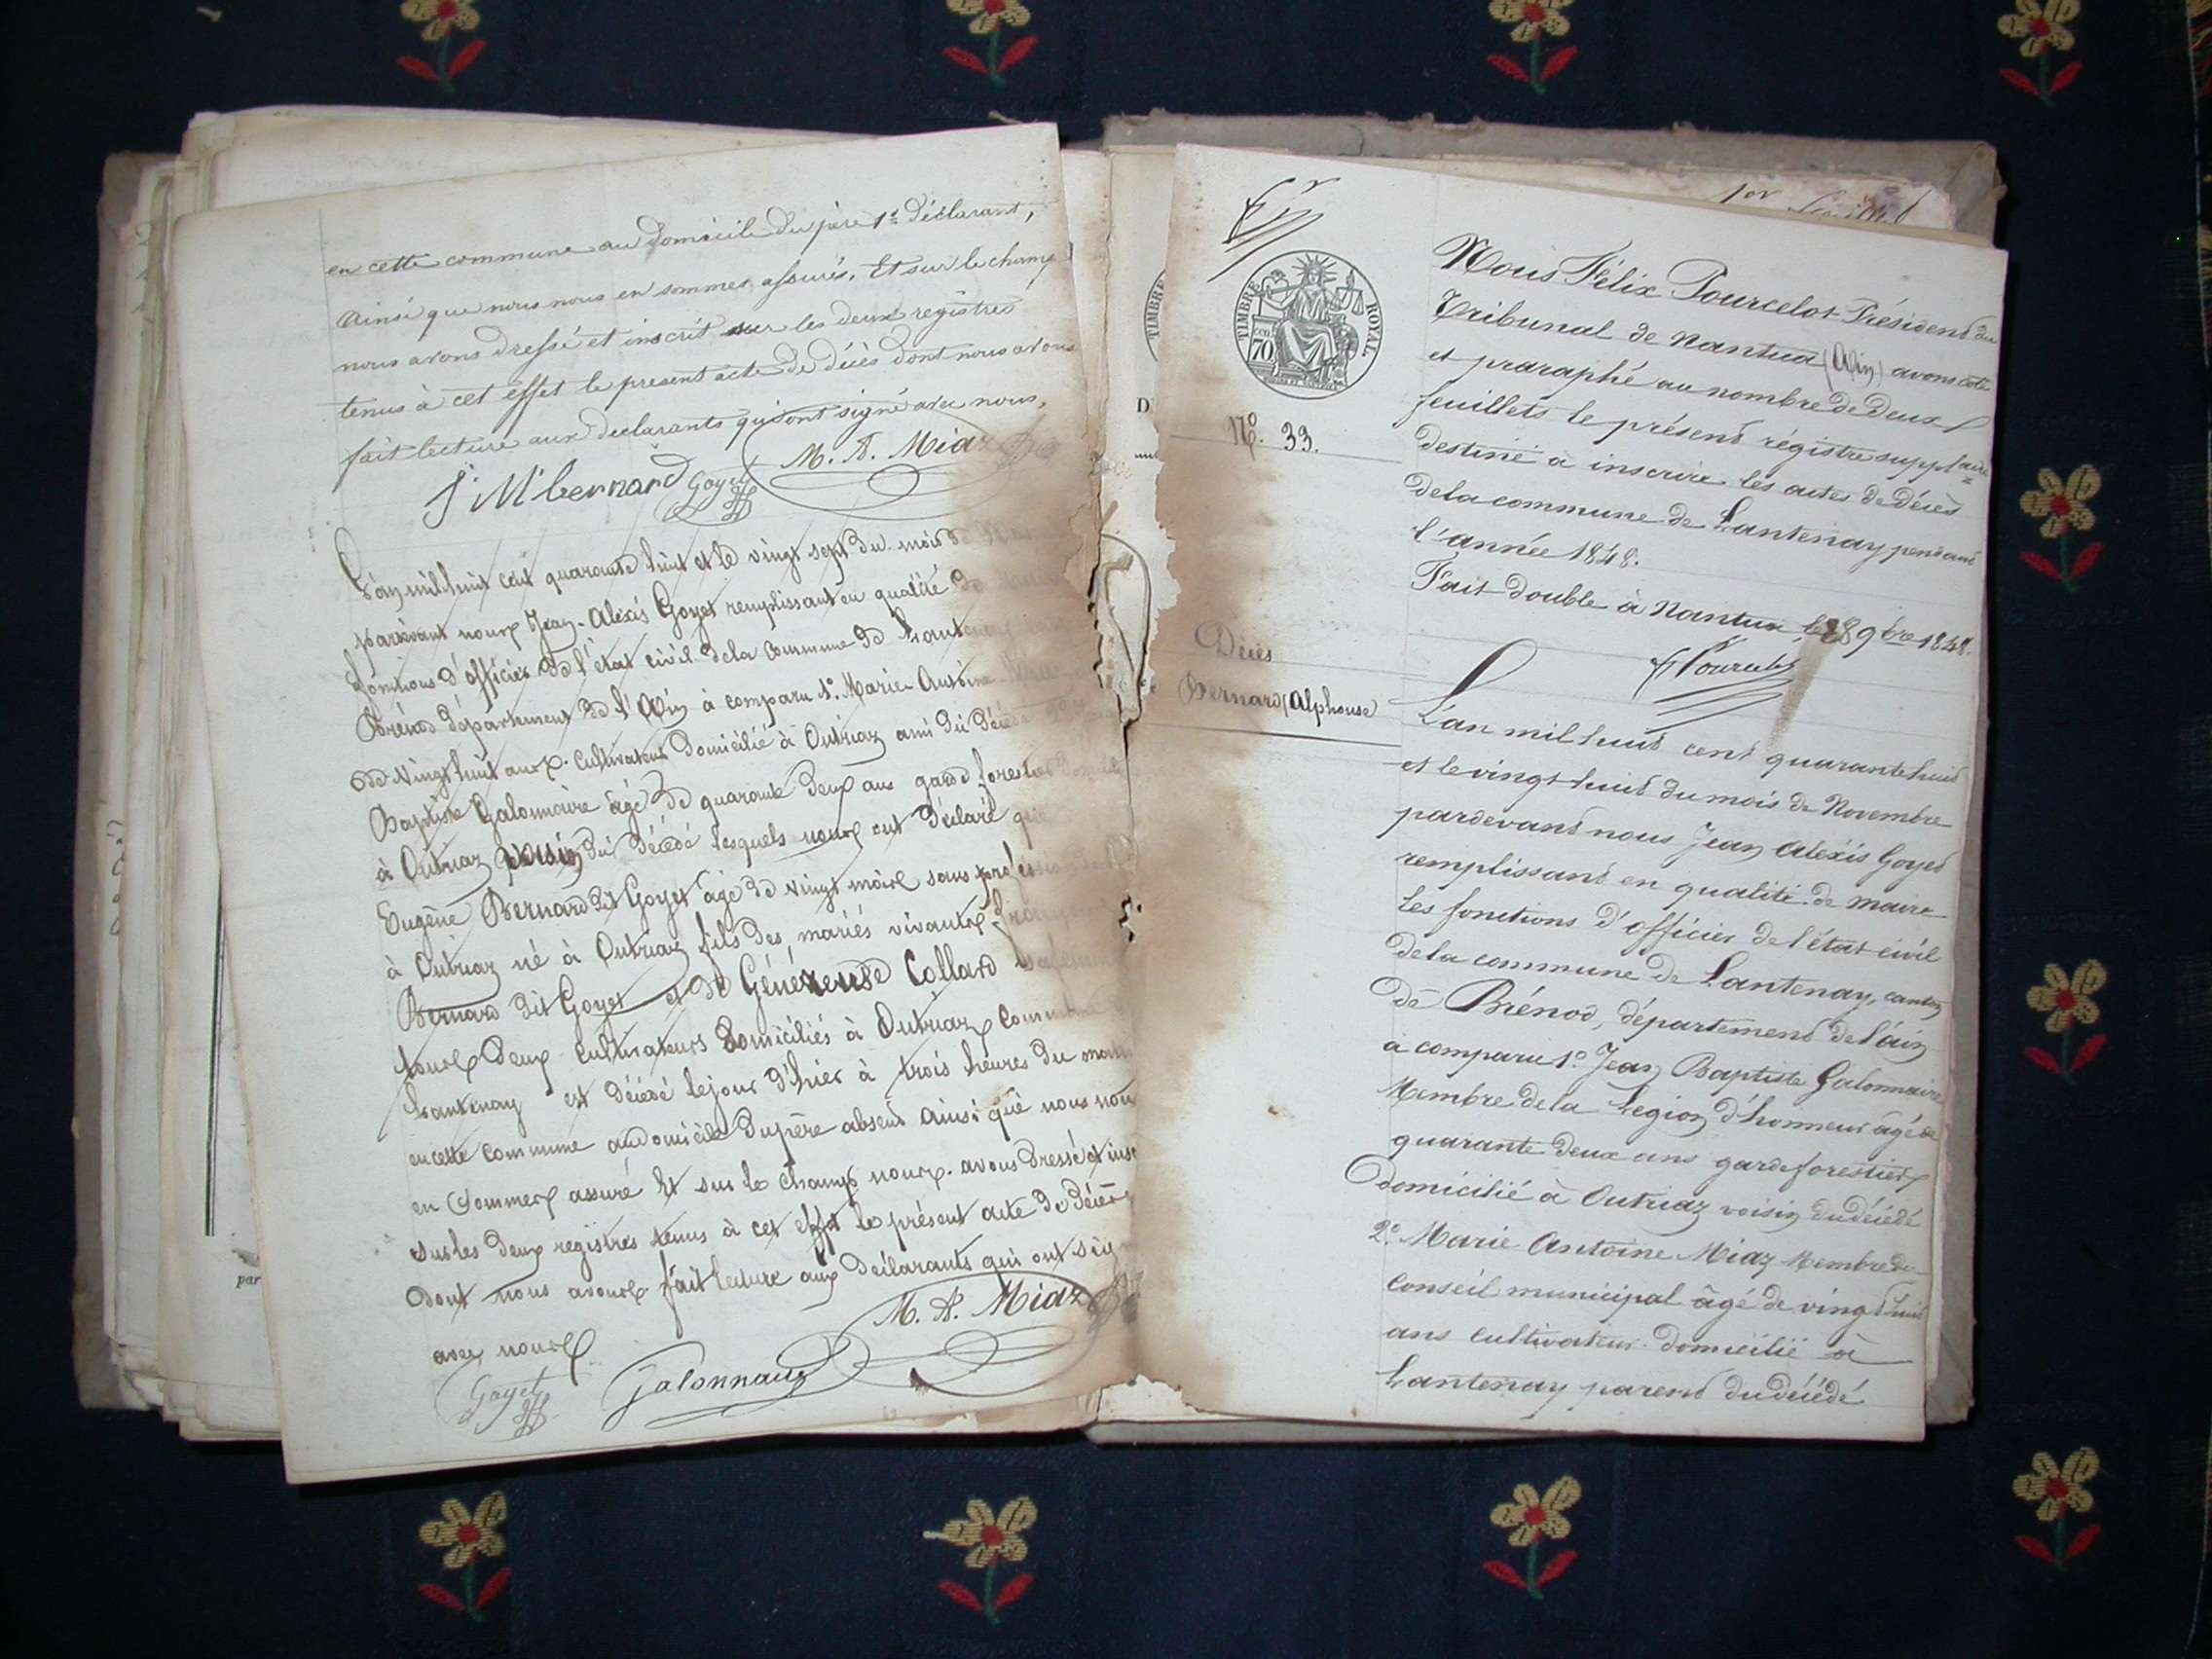 en cette commune au domicile du père 1er déclarant,
ainsi que nous nous en sommes assurés. Et sur le champ
nous avons dressé et inscrit sur les deux registres
tenus à cet effet le present acte de décès dont nous avons
fait lecture aux declarants qui ont signé avec nous.
J M bernard Goyet M. A. Miaz
L'an mil huit cent quarante huit et le vingt sept du mois de
pardevant nous Jean-Alexis Goyet remplissant en qualité de
fonctions d'officier de l'état civil de la commune de Lantenay
Brénod département de l'Ain à comparu 1º. Marie-Antoine
de vingt huit ans cultivateur domicilié à Outriaz ami du décédé
Baptiste Galonnaire âgé de quarante deux ans garde forestier
à Outriaz voisin du décédé lesquels nous ont déclaré que
Eugène Bernard dit Goyet âgé de vingt mois sans profession
à Outriaz né à Outriaz fils des mariés vivants françois
Bernard dit Goyet et de Généreuse Collard sa femme
tous deux cultivateurs domiciliés à Outriaz commune
Lantenay est décédé le jour d'hier à trois heures du
en cette commune au domicile du père absent ainsi que nous
en sommes assuré Et sur le champ nous avons dressé et
sur les deux registres tenus à cet effet le présent acte de décès
dont nous avons fait lecture aux déclarants qui ont
avec nous
M. A. Miaz
Goyet Galonnaire
1er
TIMBRE
TIMBRE ROYAL
70
D
Nº. 33.
Décès
Bernard (Alphonse)
Nous Félix Pourcelot Président du
Tribunal de Nantua (Ain) avons coté
et praraphé au nombre de deux
feuillets le présent régistre supplaire
destiné à inscrire les actes de décès
de la commune de Lantenay pendant
l'année 1848.
Fait double à Nantua, le 28 9bre 1848.
F Pourcelot
L'an mil huit cent quarante huit
et le vingt huit du mois de Novembre
pardevant nous Jean Alexis Goyet
remplissant en qualité de maire
les fonctions d'officier de l'état civil
de la commune de Lantenay, canton
de Brénod, département de l'ain
a comparu 1º. Jean Baptiste Galonnaire
Membre de la Legion d'honneur âgé de
quarante deux ans garde forestier
domicilié à Outriaz voisin du décédé
2º. Marie Antoine Miaz Membre du
Conseil municipal âgé de vingt huit
ans cultivateur domicilié à
Lantenay parent du décédé
par